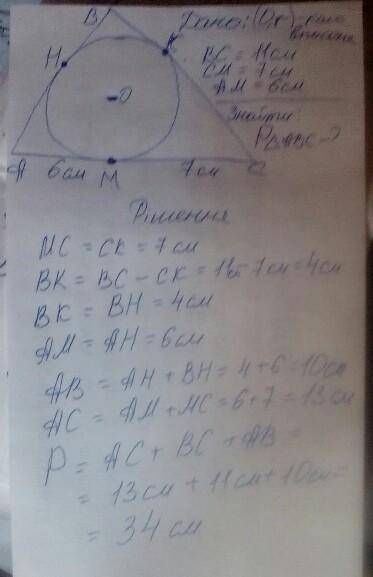 B
Дано: (O,r) - коло
K
вписане
H
BC = 11 см
CM = 7 см
AM = 6 см
O
Знайти:
P△ABC - ?
A 6 см M 7 см C
Рішення
MC = CK = 7 см
BK = BC - CK = 11 - 7 см = 4 см
BK = BH = 4 см
AM = AH = 6 см
AB = AH + BH = 4 + 6 = 10 см
AC = AM + MC = 6 + 7 = 13 см
P = AC + BC + AB =
= 13 см + 11 см + 10 см =
= 34 см